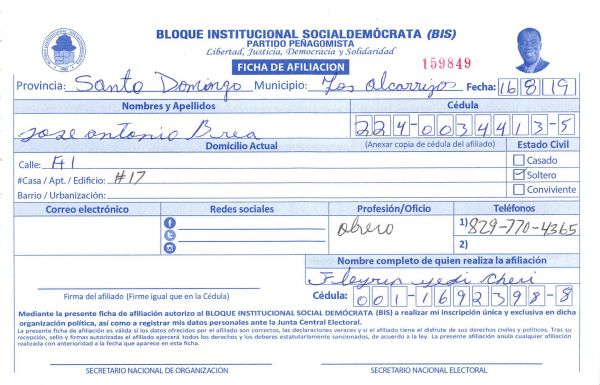 BLOQUE INSTITUCIONAL SOCIALDEMÓCRATA (BIS)
PARTIDO PEÑAGOMISTA
Libertad, Justicia, Democracia y Solidaridad
FICHA DE AFILIACION
159849
Provincia: Santo Domingo Municipio: Los alcarrizos Fecha: 16 8 19
Nombres y Apellidos Cédula
Jose antonio Brea 224-0034413-5
Domicilio Actual (Anexar copia de cédula del afiliado) Estado Civil
Calle: A1 Casado
#Casa / Apt. / Edificio: #17 Soltero
Barrio / Urbanización: Conviviente
Correo electrónico Redes sociales Profesión/Oficio Teléfonos
obrero 1) 829-770-4365
2)
Nombre completo de quien realiza la afiliación
Firma del afiliado (Firme igual que en la Cédula) Cédula: 001-1692398-8
Mediante la presente ficha de afiliación autorizo al BLOQUE INSTITUCIONAL SOCIAL DEMÓCRATA (BIS) a realizar mi inscripción única y exclusiva en dicha
organización política, así como a registrar mis datos personales ante la Junta Central Electoral.
La presente ficha de afiliación es válida si los datos ofrecidos por el afiliado son correctos, las declaraciones veraces y si el afiliado tiene el disfrute de sus derechos civiles y políticos. Tras su
recepción, sello y firmas autorizadas el afiliado ejercerá todos los derechos y los deberes estatutariamente sancionados, de acuerdo a la ley. La presente afiliación anula cualquier afiliación
realizada con anterioridad a la fecha que aparece en esta ficha.
SECRETARIO NACIONAL DE ORGANIZACIÓN SECRETARIO NACIONAL ELECTORAL